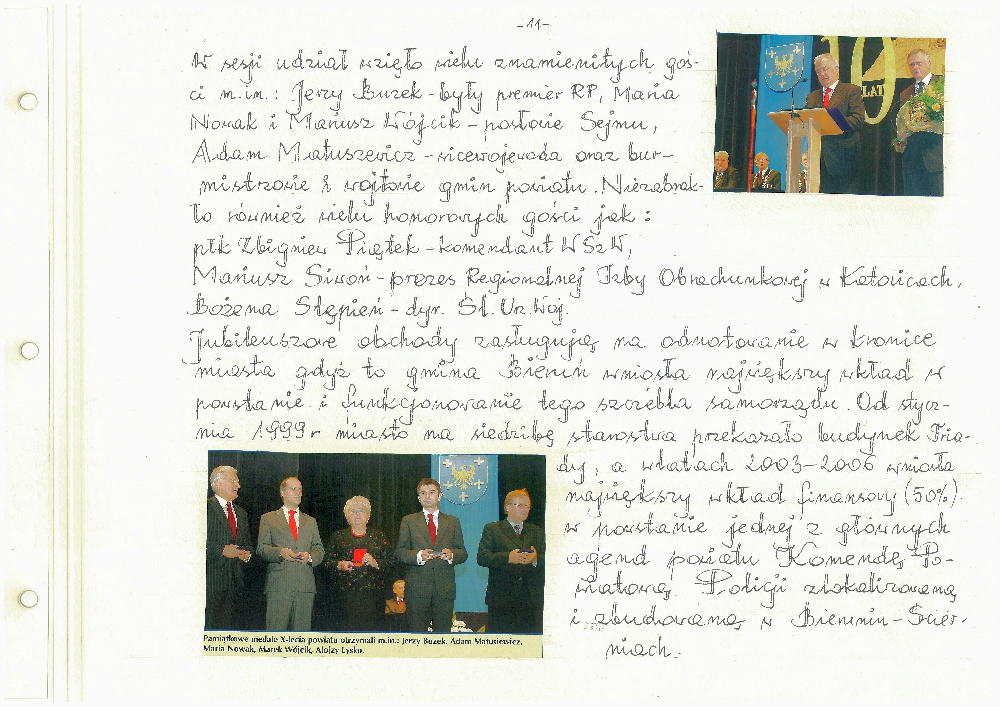 -11-
W sesji udział wzięło wielu znamienitych goś-
ci m.in.: Jerzy Buzek - były premier RP, Maria
Nowak i Mariusz Wójcik - posłowie Sejmu,
Adam Matuszewicz - wicewojewoda oraz bur-
mistrzowie i wójtowie gmin powiatu. Niezabrak-
ło również wielu honorowych gości jak:
płk Zbigniew Piątek - komendant WSzW,
Mariusz Siwoń - prezes Regionalnej Izby Obrachunkowej w Katowicach,
Bożena Stępień - dyr. Śl. Urz. Woj.
Jubileuszowe obchody zasługują na odnotowanie w kronice
miasta gdyż to gmina Bieruń wniosła największy wkład w
powstanie i funkcjonowanie tego szczebla samorządu. Od stycz-
nia 1999 r miasto na siedzibę starostwa przekazało budynek Tria-
dy, a wlatach 2003-2006 wniosła
największy wkład finansowy (50%)
w powstanie jednej z głównych
agend powiatu Komendę Po-
wiatową Policji zlokalizowaną
i zbudowaną w Bieruniu-Ścier-
niach.
10
LAT
Pamiątkowe medale X-lecia powiatu otrzymali m.in.: Jerzy Buzek, Adam Matusiewicz,
Maria Nowak, Marek Wójcik, Alojzy Lysko.